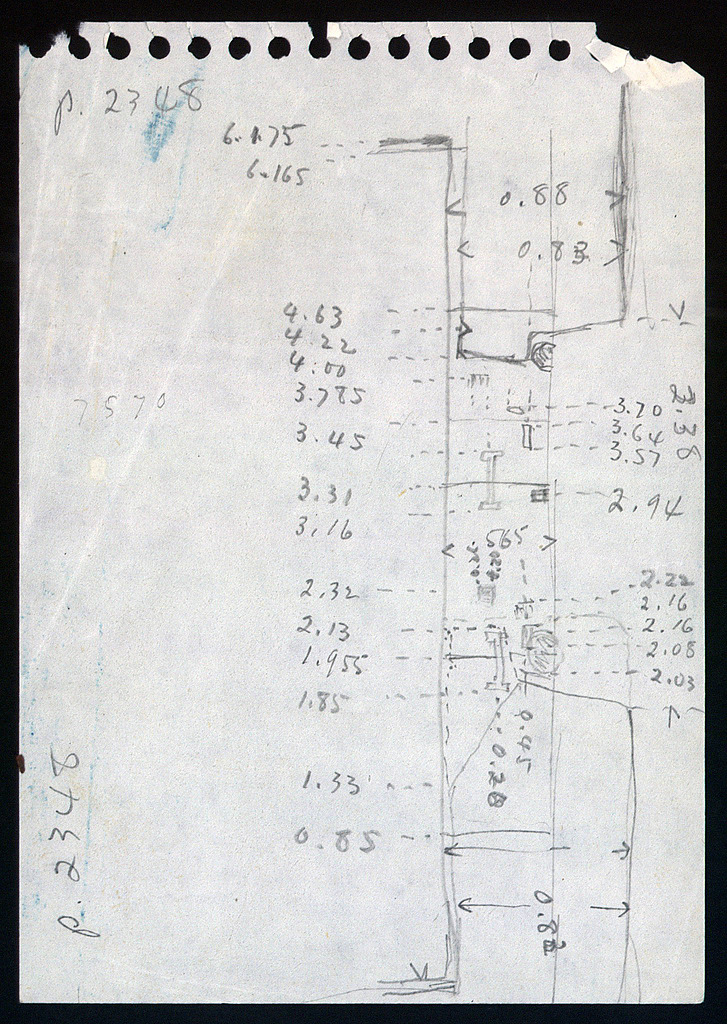 p. 2348
6.175
6.165
0.88
0.83
4.63
4.22
4.00
3.785
3.45
3.31
3.16
2.32
2.13
1.955
1.85
1.33
0.85
7570
3.70
3.64
3.57
2.38
2.94
.565
2.22
2.16
2.16
2.08
2.03
0.45
0.28
p. 2348